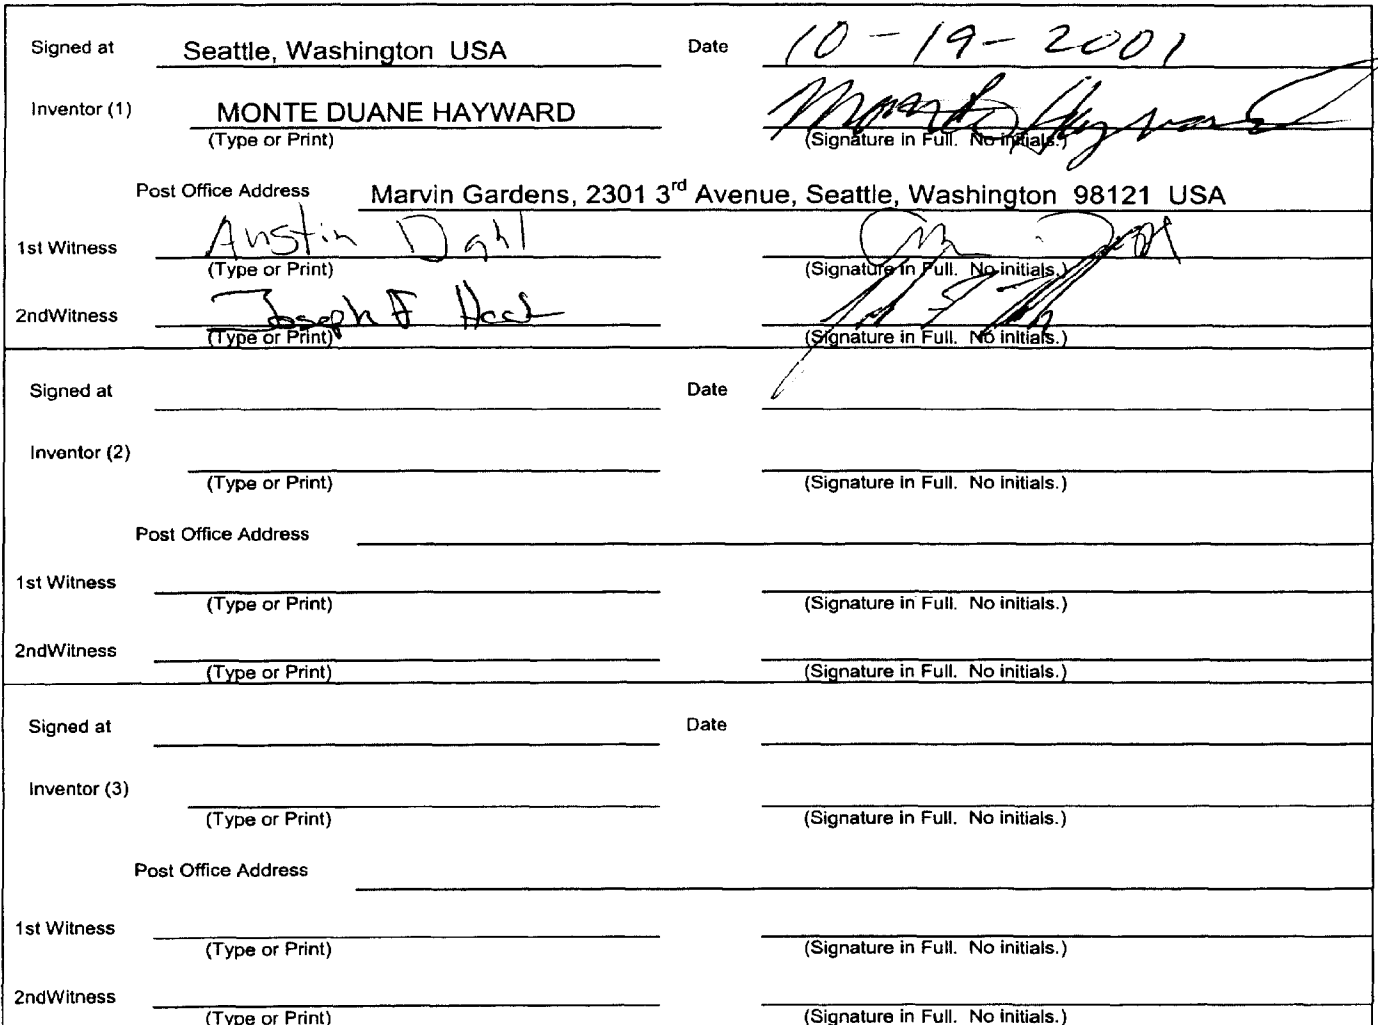 Signed at Seattle, Washington USA Date 10-19-2001
Inventor (1) MONTE DUANE HAYWARD Monte Hayward
(Type or Print) (Signature in Full. No initials.)
Post Office Address Marvin Gardens, 2301 3rd Avenue, Seattle, Washington 98121 USA
1st Witness Austin Dahl
(Type or Print) (Signature in Full. No initials.)
2ndWitness Joseph F
(Type or Print) (Signature in Full. No initials.)
Signed at Date
Inventor (2)
(Type or Print) (Signature in Full. No initials.)
Post Office Address
1st Witness
(Type or Print) (Signature in Full. No initials.)
2ndWitness
(Type or Print) (Signature in Full. No initials.)
Signed at Date
Inventor (3)
(Type or Print) (Signature in Full. No initials.)
Post Office Address
1st Witness
(Type or Print) (Signature in Full. No initials.)
2ndWitness
(Type or Print) (Signature in Full. No initials.)